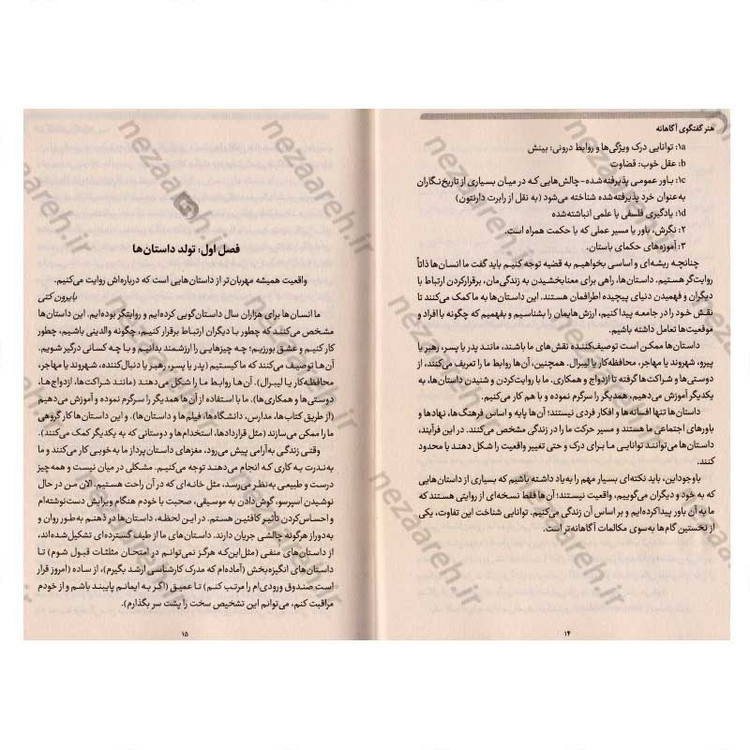 هنر گفتگوی آگاهانه
۱a: توانایی درک ویژگی‌ها و روابط درونی: بینش
b: عقل خوب: قضاوت
۱c: باور عمومی پذیرفته‌شده-چالش‌هایی که در میان بسیاری از تاریخ‌نگاران
به‌عنوان خرد پذیرفته‌شده شناخته می‌شود (به نقل از رابرت دارنتون)
۱d: یادگیری فلسفی یا علمی انباشته‌شده
۲: نگرش، باور یا مسیر عملی که با حکمت همراه است.
۳: آموزه‌های حکمای باستان.
چنانچه ریشه‌ای و اساسی بخواهیم به قضیه توجه کنیم باید گفت ما انسان‌ها ذاتاً
روایت‌گر هستیم. داستان‌ها، راهی برای معنابخشیدن به زندگی‌مان، برقرارکردن ارتباط با
دیگران و فهمیدن دنیای پیچیده اطرافمان هستند. این داستان‌ها به ما کمک می‌کنند تا
نقش خود را در جامعه پیدا کنیم، ارزش‌هایمان را بشناسیم و بفهمیم که چگونه با افراد و
موقعیت‌ها تعامل داشته باشیم.
داستان‌ها ممکن است توصیف‌کننده نقش‌های ما باشند، مانند پدر یا پسر، رهبر یا
پیرو، شهروند یا مهاجر، محافظه‌کار یا لیبرال. همچنین، آن‌ها روابط ما را تعریف می‌کنند، از
دوستی‌ها و شراکت‌ها گرفته تا ازدواج و همکاری. ما با روایت‌کردن و شنیدن داستان‌ها، به
یکدیگر آموزش می‌دهیم، همدیگر را سرگرم نموده و با هم کار می‌کنیم.
داستان‌ها تنها افسانه‌ها و افکار فردی نیستند؛ آن‌ها پایه و اساس فرهنگ‌ها، نهادها و
باورهای اجتماعی ما هستند و مسیر حرکت ما را در زندگی مشخص می‌کنند. در این فرآیند،
داستان‌ها می‌توانند توانایی ما برای درک و حتی تغییر واقعیت را شکل دهند یا محدود
کنند.
باوجوداین، باید نکته‌ای بسیار مهم را به‌یاد داشته باشیم که بسیاری از داستان‌هایی
که به خود و دیگران می‌گوییم، واقعیت نیستند؛ آن‌ها فقط نسخه‌ای از روایتی هستند که
ما به آن باور پیدا کرده‌ایم و بر اساس آن زندگی می‌کنیم. توانایی شناخت این تفاوت، یکی
از نخستین گام‌ها به‌سوی مکالمات آگاهانه‌تر است.
۱۴
فصل اول: تولد داستان‌ها
واقعیت همیشه مهربان‌تر از داستان‌هایی است که درباره‌اش روایت می‌کنیم.
بایرون کتی
ما انسان‌ها برای هزاران سال داستان‌گویی کرده‌ایم و روایتگر بوده‌ایم. این داستان‌ها
مشخص می‌کنند که چطور با دیگران ارتباط برقرار کنیم، چگونه والدینی باشیم، چطور
کار کنیم و عشق بورزیم؛ چه چیزهایی را ارزشمند بدانیم و با چه کسانی درگیر شویم.
آن‌ها توصیف می‌کنند که ما کیستیم (پدر یا پسر، رهبر یا دنبال‌کننده، شهروند یا مهاجر،
محافظه‌کار یا لیبرال). آن‌ها روابط ما را شکل می‌دهند (مانند شراکت‌ها، ازدواج‌ها،
دوستی‌ها و همکاری‌ها). ما با استفاده از آن‌ها همدیگر را سرگرم نموده و آموزش می‌دهیم
(از طریق کتاب‌ها، مدارس، دانشگاه‌ها، فیلم‌ها و داستان‌ها). و این داستان‌ها کار گروهی
ما را ممکن می‌سازند (مثل قراردادها، استخدام‌ها و دوستانی که به یکدیگر کمک می‌کنند).
وقتی زندگی به‌آرامی پیش می‌رود، مغزهای داستان‌پرداز ما به خوبی کار می‌کنند و ما
به‌ندرت به کاری که انجام می‌دهند توجه می‌کنیم. مشکلی در میان نیست و همه‌چیز
درست و طبیعی به‌نظر می‌رسد، مثل خانه‌ای که در آن راحت هستیم. الان من در حال
نوشیدن اسپرسو، گوش‌دادن به موسیقی، صحبت با خودم هنگام ویرایش دست‌نوشته‌ام
و احساس‌کردن تأثیر کافئین هستم. در این لحظه، داستان‌ها در ذهنم به‌طور روان و
به‌دور از هرگونه چالشی جریان دارند. داستان‌های ما از طیف گسترده‌ای تشکیل شده‌اند،
از داستان‌های منفی (مثل این‌که هرگز نمی‌توانم در امتحان مثلثات قبول شوم) تا
داستان‌های انگیزه‌بخش (آماده‌ام که مدرک کارشناسی ارشد بگیرم)، از ساده (امروز قرار
است صندوق ورودی‌ام را مرتب کنم) تا عمیق (اگر به ایمانم پایبند باشم و از خودم
مراقبت کنم، می‌توانم این تشخیص سخت را پشت سر بگذارم).
۱۵
nezaareh.ir
nezaareh.ir
nezaareh.ir
nezaareh.ir
nezaareh.ir
nezaareh.ir
nezaareh.ir
nezaareh.ir